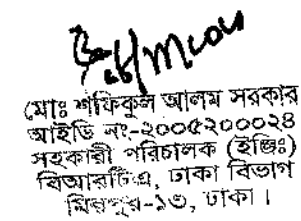 মোঃ শফিকুল আলম সরকার
আইডি নং-২০০৫২০০০২৪
সহকারী পরিচালক (ইঞ্জিঃ)
বিআরটিএ, ঢাকা বিভাগ
মিরপুর-১৩, ঢাকা।